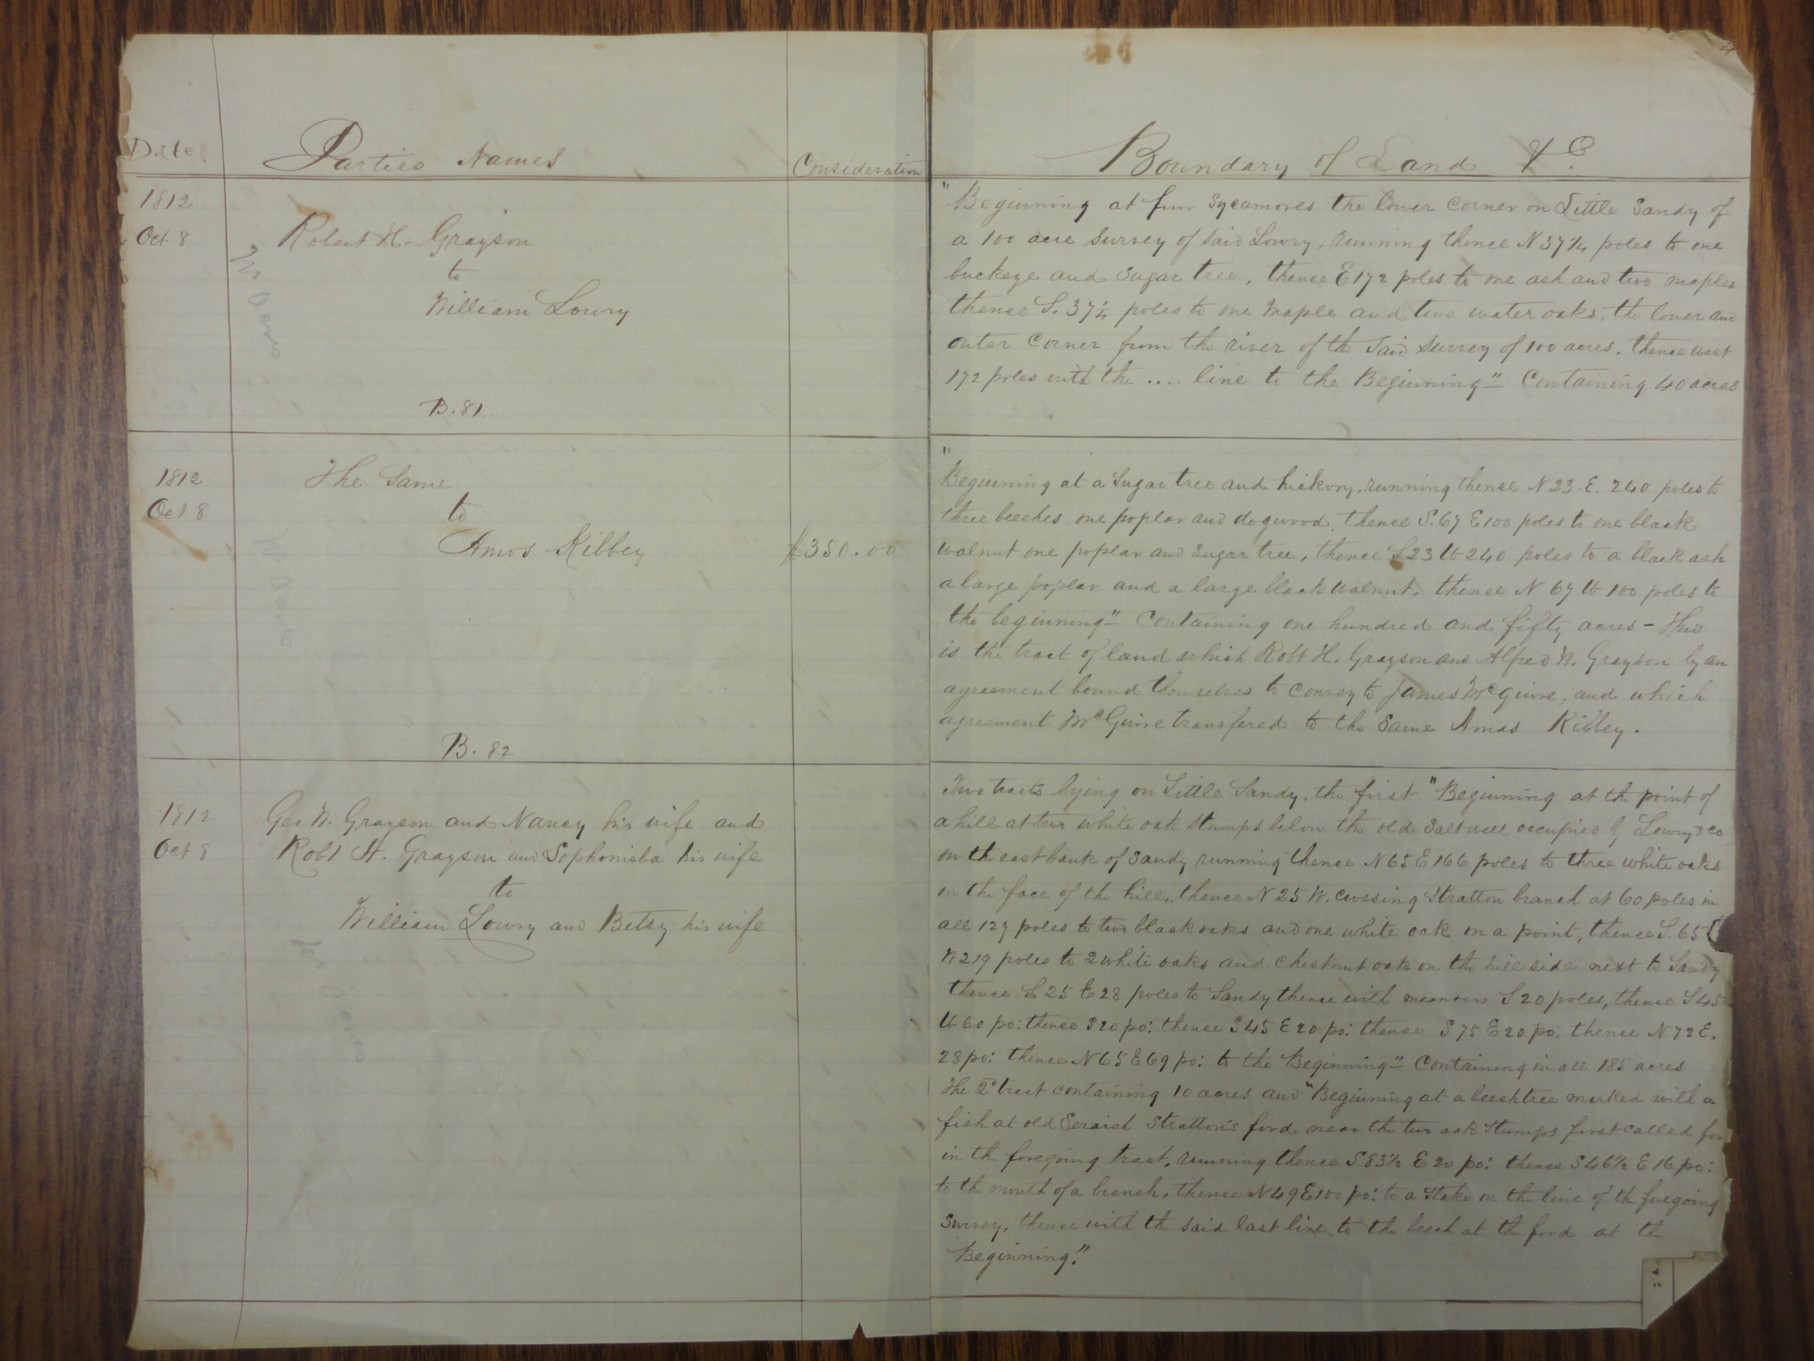 Date
Parties Names
Consideration
Boundary of Land &C.
1812
Oct. 8
Robert H. Grayson
to
William Lowry
B. 81
"Beginning at four Sycamores the lower corner on Little Sandy of
a 100 acre survey of said Lowry, running thence N 37¼ poles to one
buckeye and sugar tree, thence E 172 poles to one ash and two maples
thence S. 37¼ poles to one maple and two water oaks, the lower and
outer corner from the river of the said survey of 100 acres, thence west
172 poles with the .... line to the Beginning" Containing 40 acres
1812
Oct 8
The Same
to
Amos Kibbey
$350.00
B. 82
"Beginning at a sugar tree and hickory, running thense N 23. E. 240 poles to
three beeches one poplar and dogwood, thence S. 67 E 100 poles to one black
walnut one poplar and sugar tree, thence S 23 W 240 poles to a black ash
a large poplar and a large black walnut, thence N 67 W 100 poles to
the beginning" Containing one hundred and fifty acres - This
is the tract of land which Robt H. Grayson and Alfred W. Grayson by an
agreement bound themselves to convey to James McGuire, and which
agreement McGuire transfered to the same Amos Kibbey.
1812
Oct 8
Geo W. Grayson and Nancy his wife and
Robt H. Grayson and Sophonisba his wife
to
William Lowry and Betsy his wife
Two tracts lying on Little Sandy, the first "Beginning at the point of
a hill at two white oak stumps below the old Salt well occupied by Lowry & Co
on the east bank of Sandy running thence N 65 E 166 poles to three white oaks
on the face of the hill, thence N 25 W. crossing Stratton branch at 60 poles in
all 127 poles to two black oaks and one white oak on a point, thence S. 65
W 219 poles to 2 white oaks and chestnut oak on the hill side next to Sandy
thence S. 25 E 28 poles to Sandy thence with meanders S 20 poles, thence S 45
W 60 po: thence S 20 po: thence S 45 E 20 po: thense S 75 E 20 po: thence N 72 E.
28 po: thence N 65 E 69 po: to the Beginning" Containing in all 185 acres
The 2d tract containing 10 acres and "Beginning at a beech tree marked with a
fish at old Seraiah Stratton's ford near the two oak stumps first called for
in the foregoing tract, running thence S 83½ E 20 po: thence S 46½ E 16 po:
to the mouth of a branch, thence N 49 E 100 po: to a stake on the line of the foregoing
survey, thence with the said last line to the beech at the ford at the
Beginning."